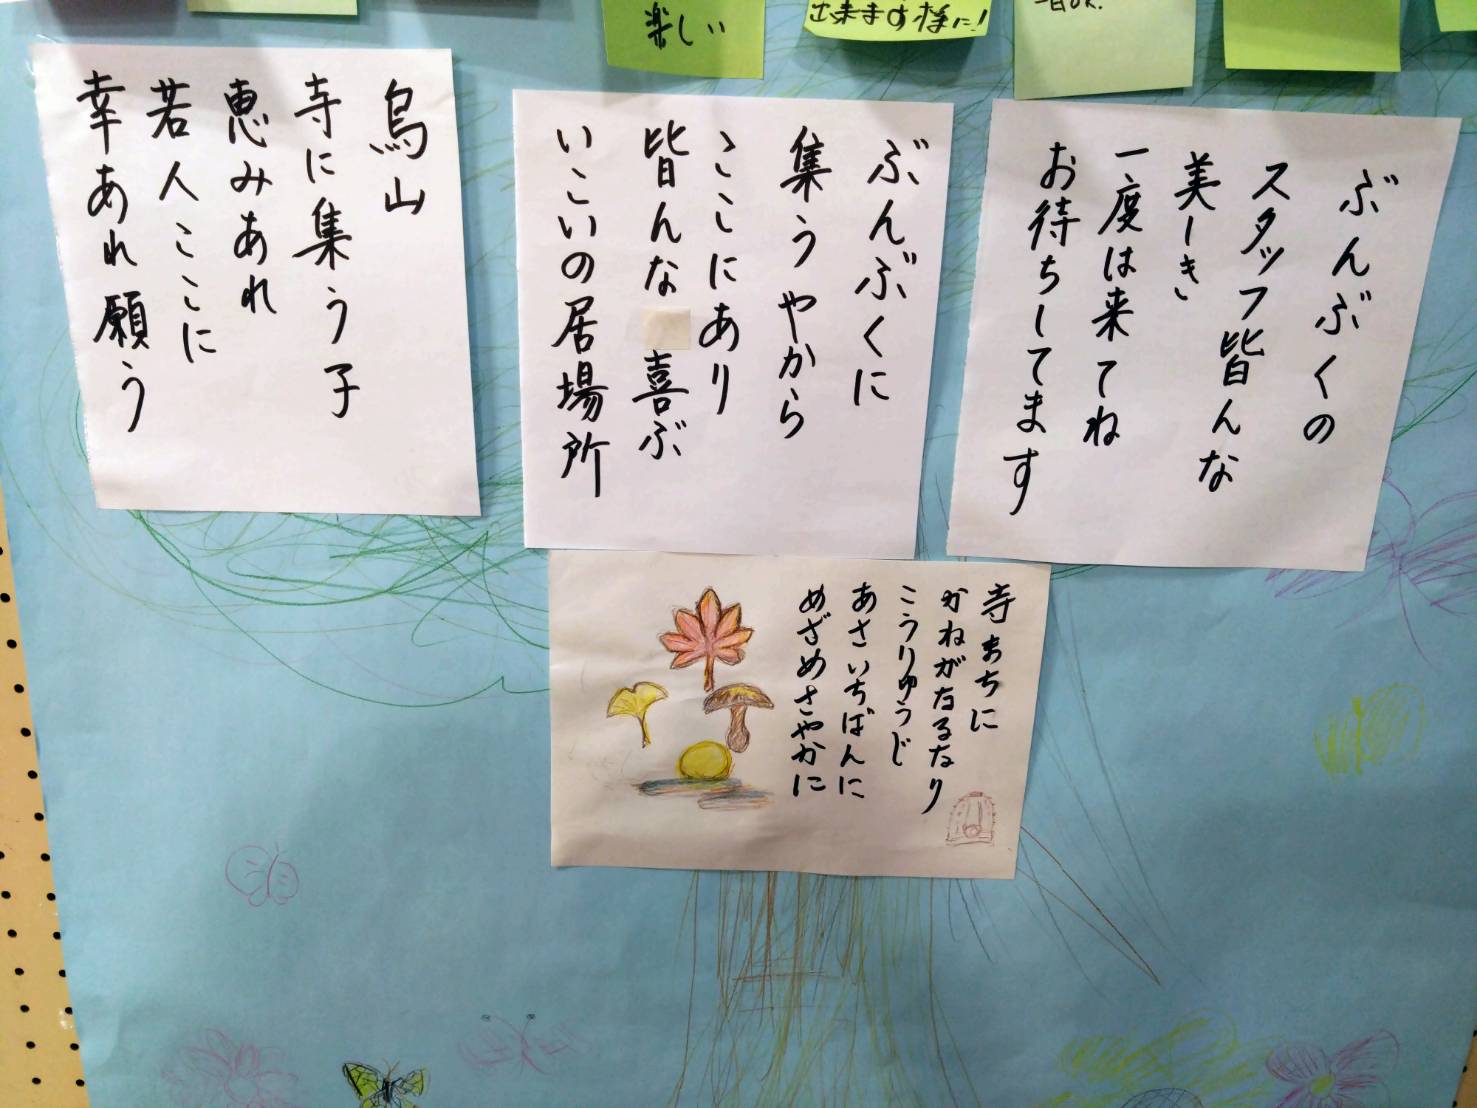 楽しい
出来ます様に!
ぶんぶくの
スタッフ皆んな
美しき
一度は来てね
お待ちしてます
ぶんぶくに
集うやから
ここにあり
皆んな喜ぶ
いこいの居場所
烏山
寺に集う子
恵みあれ
若人ここに
幸あれ願う
寺まちに
かねがなるなり
こうりゅうじ
あさいちばんに
めざめさやかに